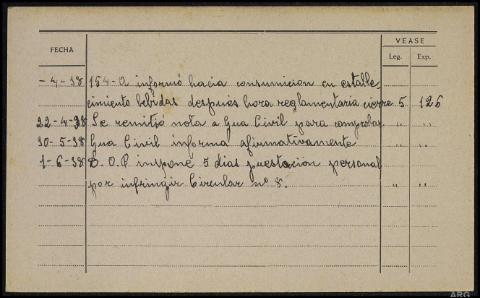 VEASE
FECHA Leg. Exp.
- -4-38 154-A informó hacia consumicion en estable-
cimiento bebidas despues hora reglamentaria cierre 5 126
22-4-38 Se remitió nota a Gua Civil para comprobar " "
30-5-38 Gua Civil informa afirmativamente " "
1-6-38 D. O. P. impone 5 dias prestacion personal
por infringir Circular nº 8. " "
ARG